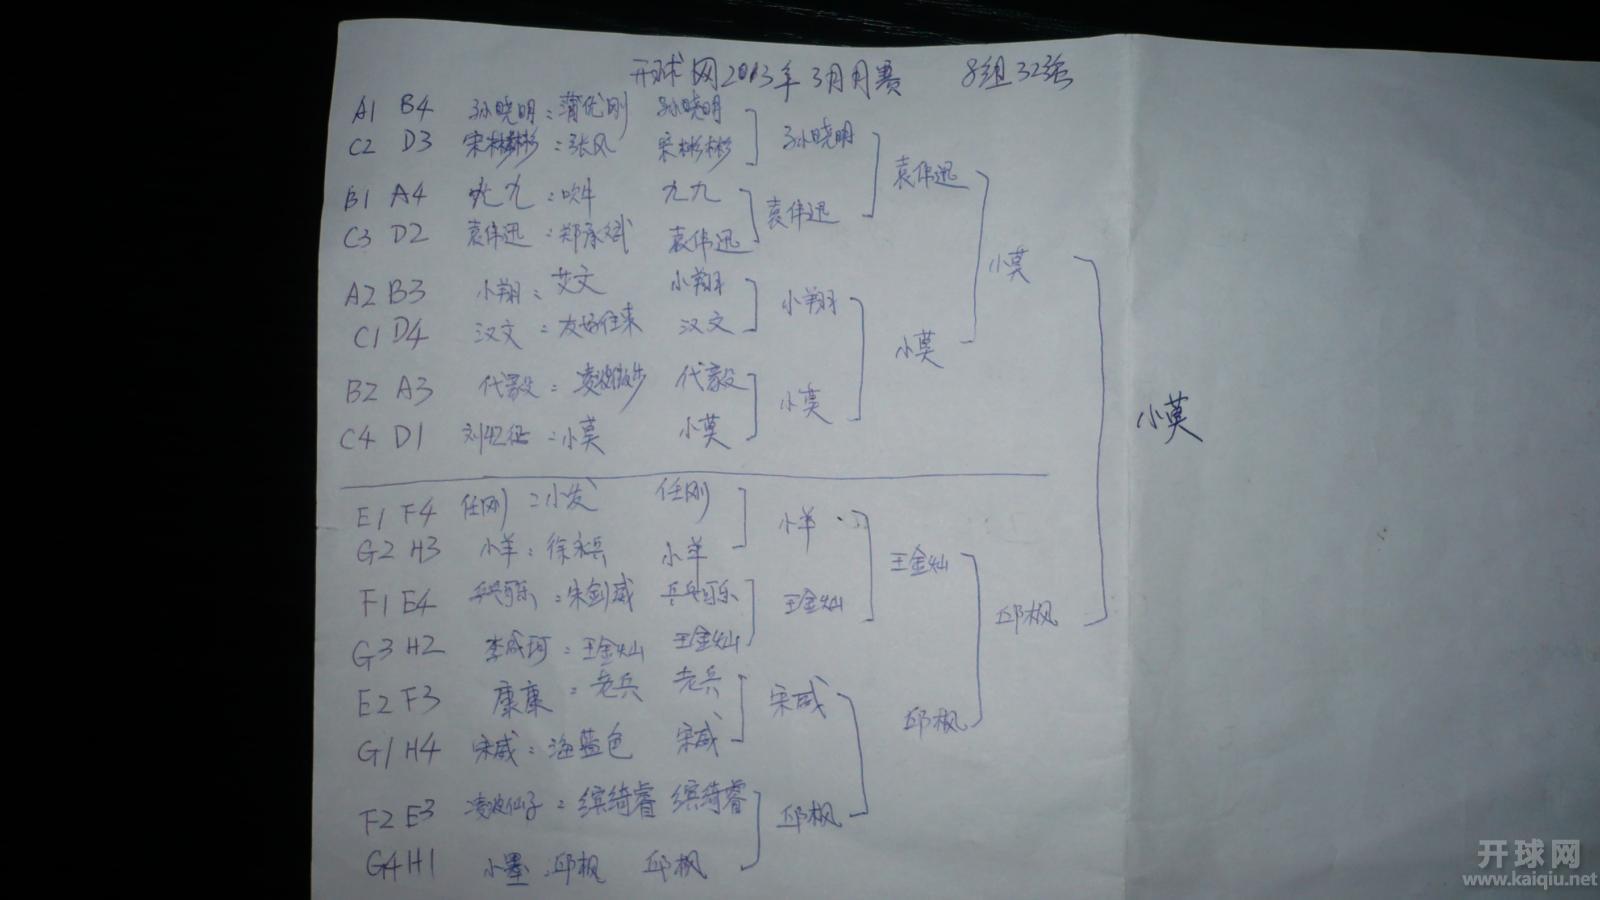 开球网2013年3月月赛 8组32强
A1 B4 孙晓明:蒲优刚 孙晓明
孙晓明
C2 D3 宋彬彬:张风 宋彬彬
袁伟迅
B1 A4 九九:吹牛 九九
袁伟迅
C3 D2 袁伟迅:郑承斌 袁伟迅
小莫
A2 B3 小翔:艾文 小翔
小翔
C1 D4 汉文:友好往来 汉文
小莫
B2 A3 代毅:凌波微步 代毅
小莫
小莫
C4 D1 小莫 小莫
E1 F4 任刚:小发 任刚
小羊
G2 H3 小羊:徐永兵 小羊
王金灿
F1 E4 乒乓可乐:朱剑威 乒乓可乐
王金灿
邱枫
G3 H2 李成珂:王金灿 王金灿
E2 F3 康康:老兵 老兵
宋威
邱枫
G1 H4 宋威:海蓝色 宋威
F2 E3 凌波仙子:缤绮睿 缤绮睿
邱枫
G4 H1 小墨:邱枫 邱枫
开球网
www.kaiqiu.net